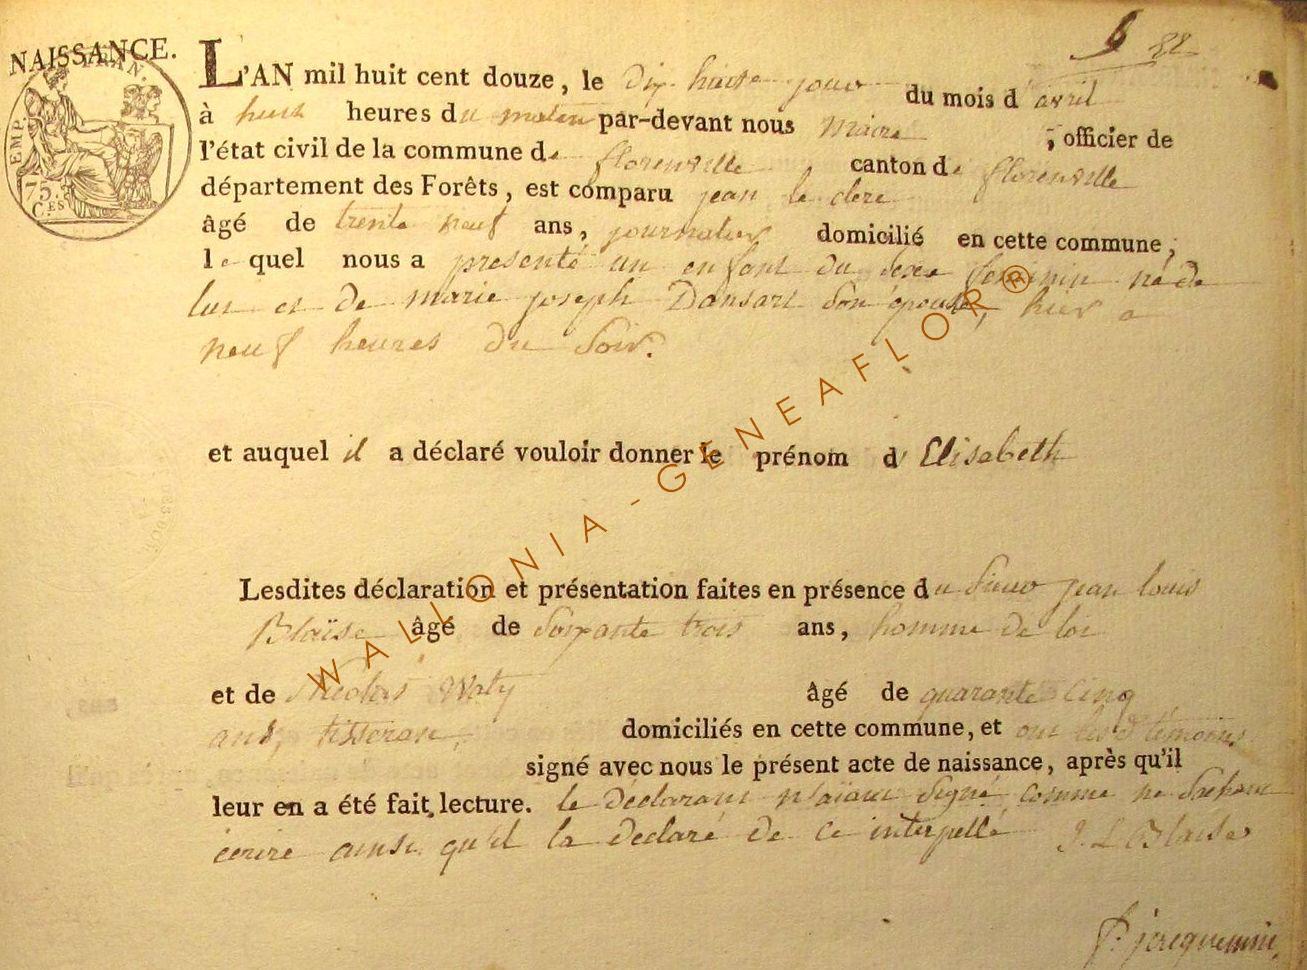 6 22
NAISSANCE.
EMP. FRAN.
75. CES
L'AN mil huit cent douze, le dix huit jour du mois d'avril
à huit heures du matin par-devant nous maire, officier de
l'état civil de la commune de florenville canton de florenville
département des Forêts, est comparu jean le clere
âgé de trente neuf ans, journalier domicilié en cette commune,
lequel nous a presenté un enfant du sexe feminin né de
lui et de marie joseph Dansart Son épouse, hier a
neuf heures du Soir.
et auquel il a déclaré vouloir donner le prénom d'Elisabeth
Lesdites déclaration et présentation faites en présence du Sieur jean louis
Blaïse âgé de Soixante trois ans, homme de loi
et de Nicolas Waty âgé de quarante cinq
ans, tisseran, domiciliés en cette commune, et ont lesd. témoins
signé avec nous le présent acte de naissance, après qu'il
leur en a été fait lecture. le déclarant n'aïant Signé comme ne Sachant
écrire ainsi qu'il la declaré de ce interpellé J. L. Blaise
jacquemin
WALLONIA-GENEAFLOR®